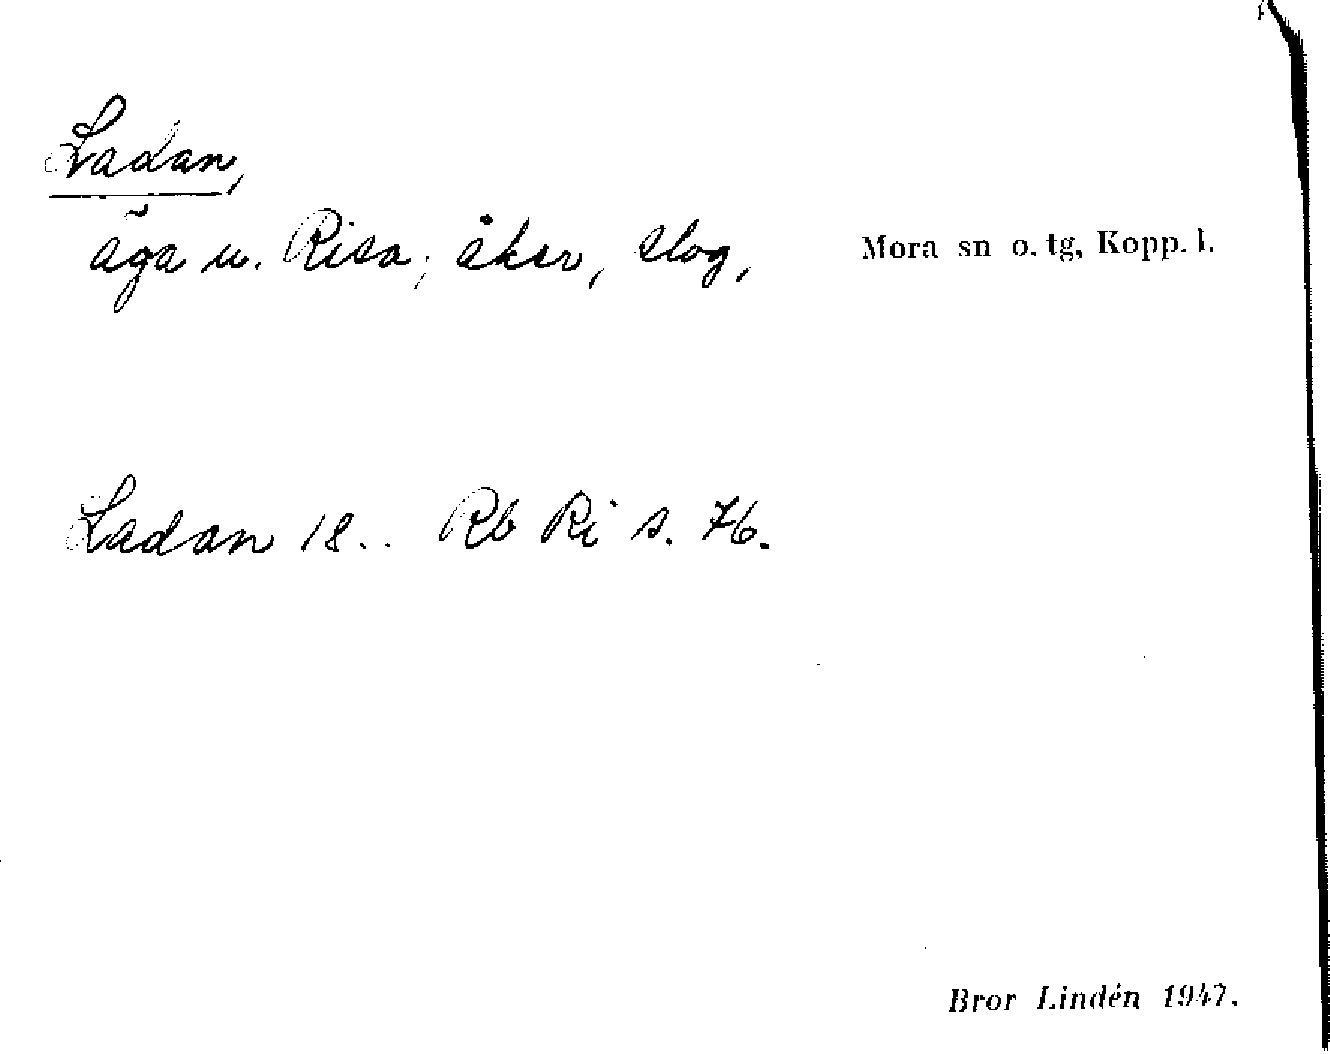 Ladan,
äga u. Risa; åker, slog, Mora sn o. tg, Kopp. l.
Ladan 18.. Rb Ri s. 76.
Bror Lindén 1947.